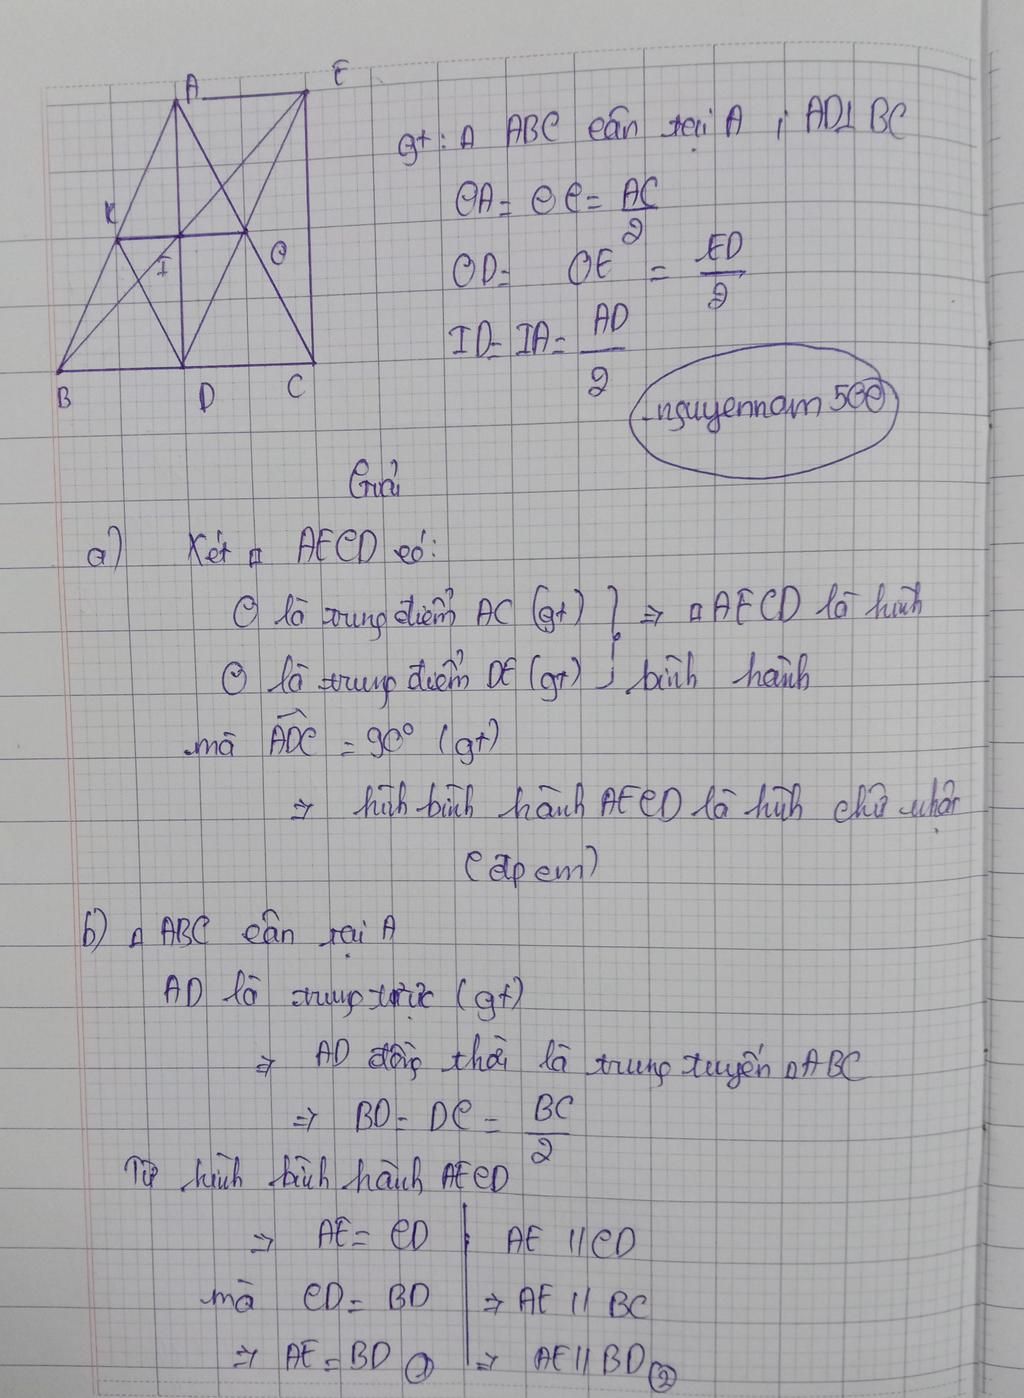 A E
gt: Δ ABC cân tại A ; AD⊥ BC
K
OA = OC = AC/2
I O
OD = OE = ED/2
ID = IA = AD/2
B D C
nguyennam 500
Giải
a) Xét □ AECD có:
O là trung điểm AC (gt) } ⇒ □AECD là hình
O là trung điểm DE (gt) bình hành
mà ADC = 90° (gt)
⇒ hình bình hành AECD là hình chữ nhật
(đpcm)
b) Δ ABC cân tại A
AD là trung trực (gt)
⇒ AD đồng thời là trung tuyến ΔABC
⇒ BD = DC = BC/2
Từ hình bình hành AECD
⇒ AE = CD | AE // CD
mà CD = BD | ⇒ AE // BC
⇒ AE = BD ① | ⇒ AE // BD ②